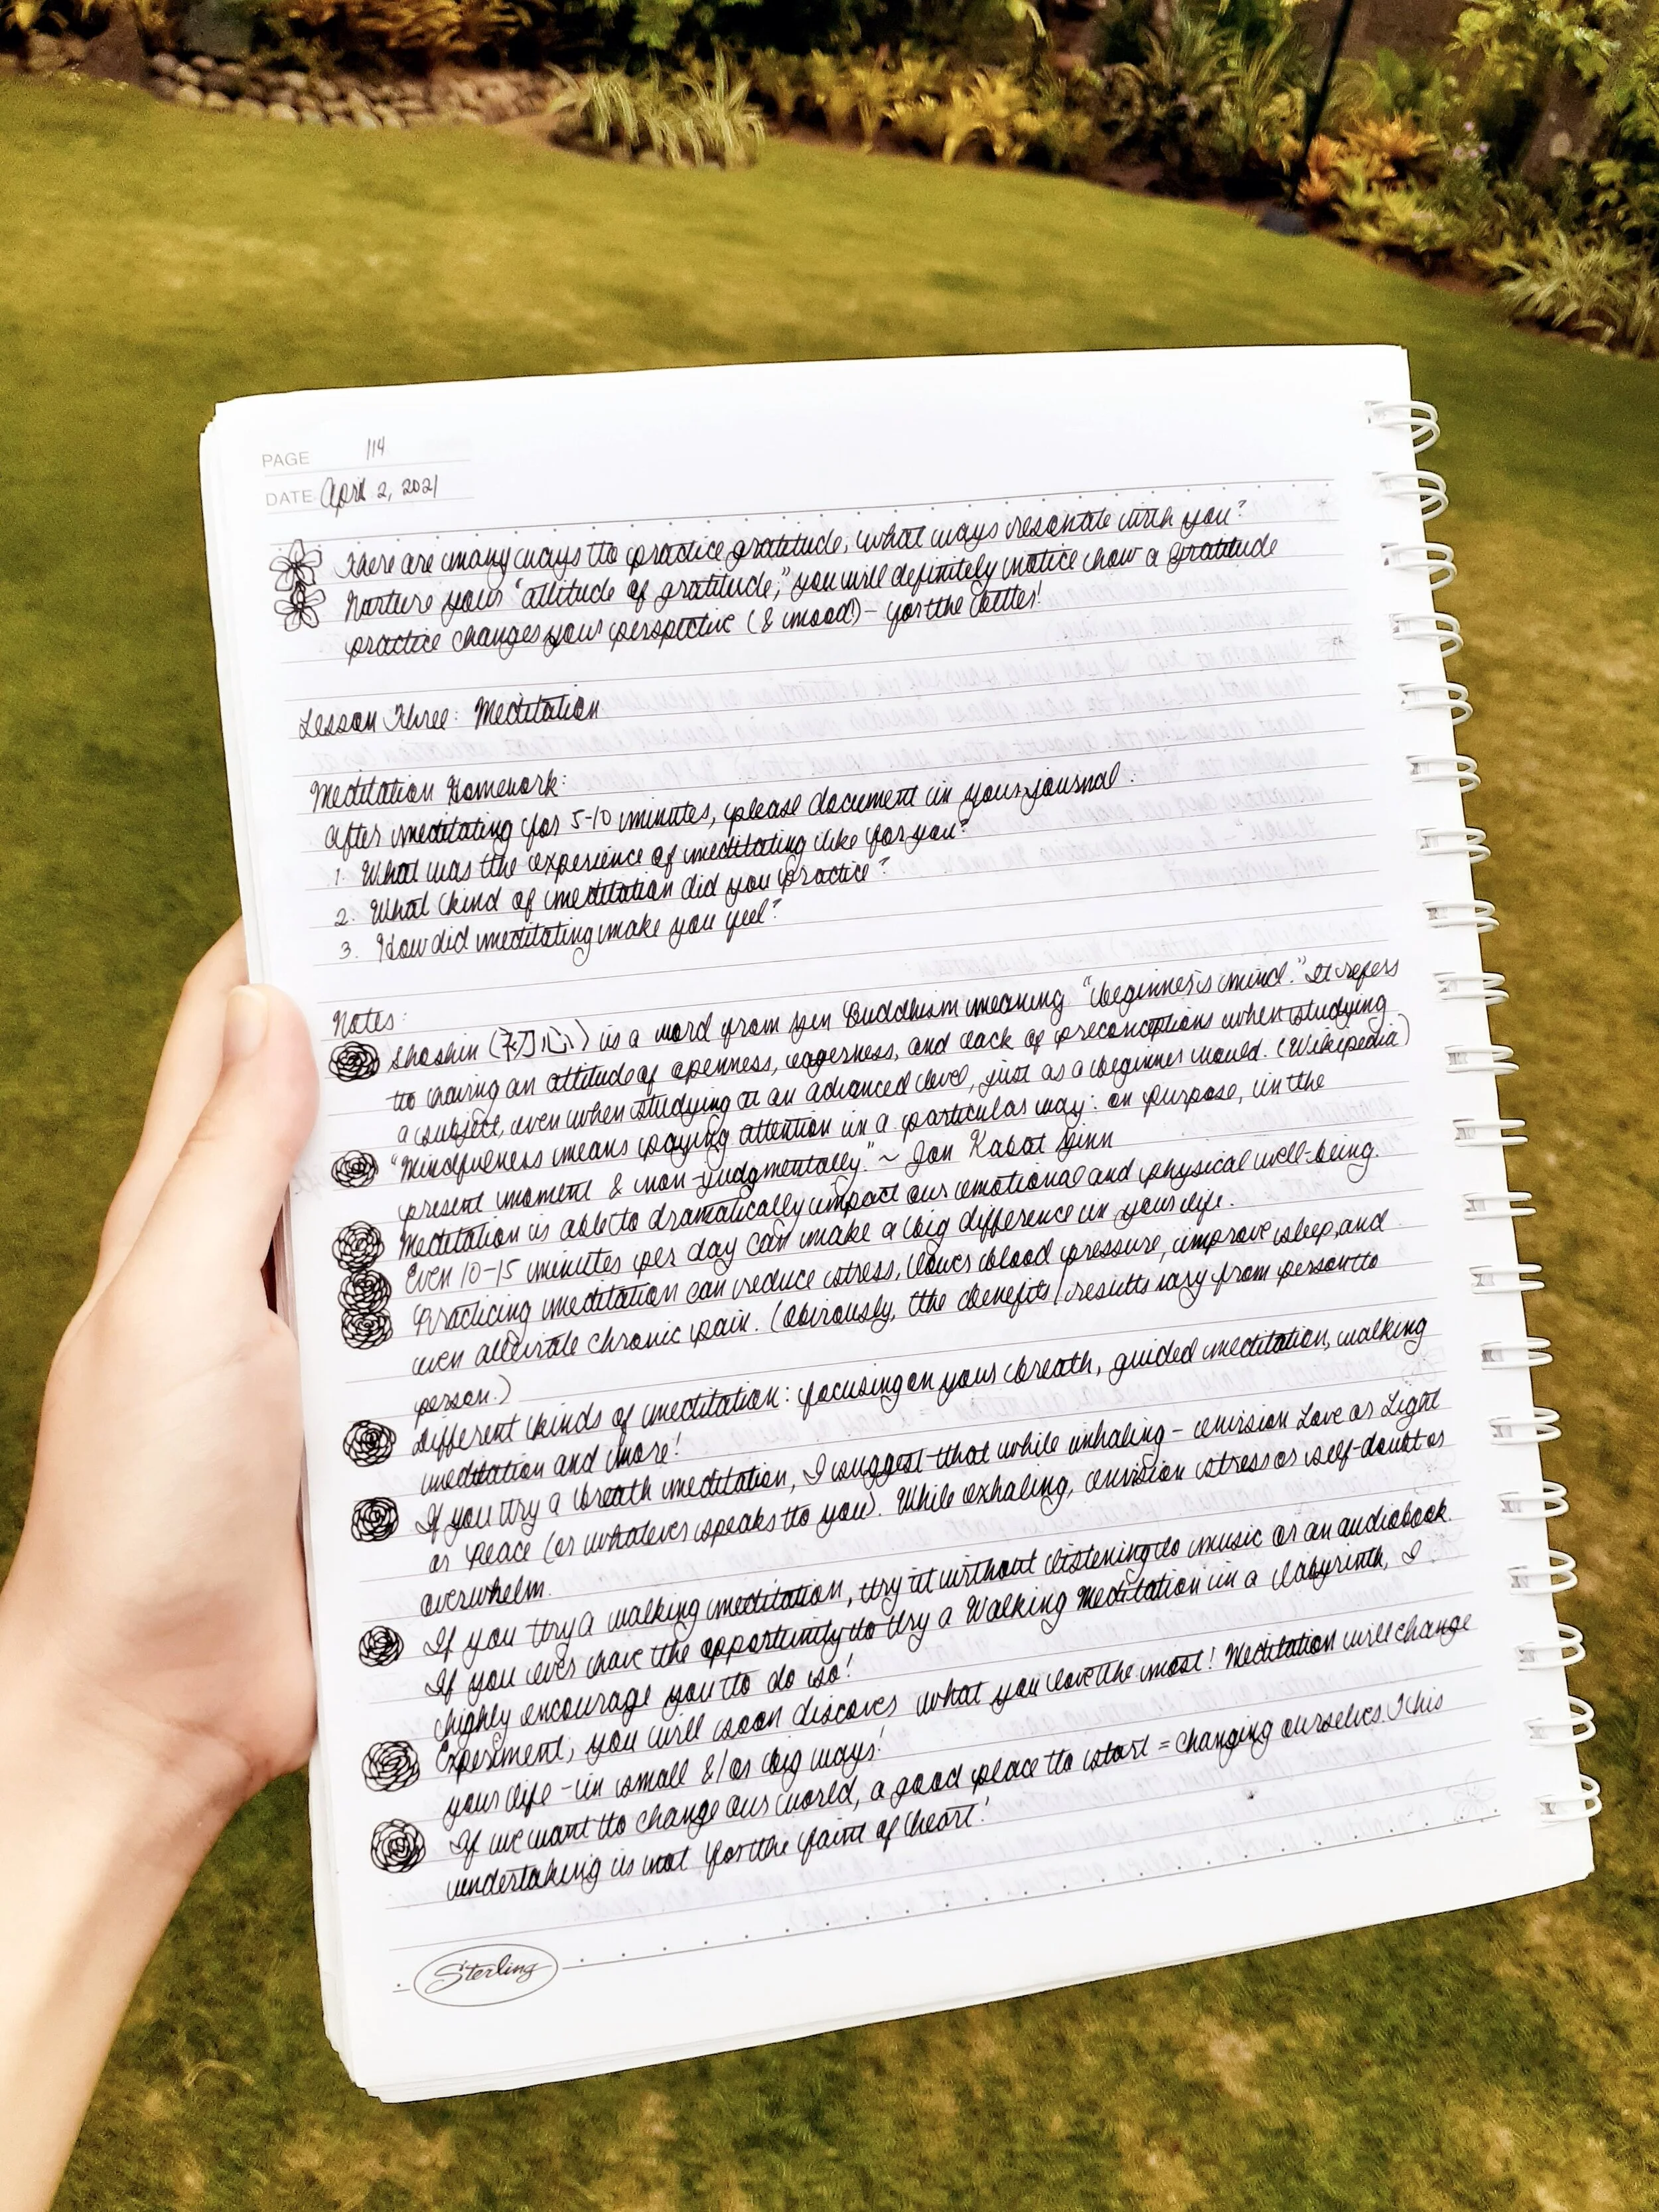 PAGE 114
DATE April 2, 2021
There are many ways to practice gratitude, what ways resonate with you?
Nurture your "attitude of gratitude," you will definitely notice how a gratitude
practice changes your perspective (& mood!) - for the better!
Lesson Three: Meditation
Meditation Homework:
After meditating for 5-10 minutes, please document in your journal:
1. What was the experience of meditating like for you?
2. What kind of meditation did you practice?
3. How did meditating make you feel?
Notes:
Shoshin (初心) is a word from Zen Buddhism meaning "beginner's mind." It refers
to having an attitude of openness, eagerness, and lack of preconceptions when studying
a subject, even when studying at an advanced level, just as a beginner would. (Wikipedia)
"Mindfulness means paying attention in a particular way: on purpose, in the
present moment & non-judgmentally." ~ Jon Kabat Zinn
Meditation is able to dramatically impact our emotional and physical well-being.
Even 10-15 minutes per day can make a big difference in your life.
Practicing meditation can reduce stress, lower blood pressure, improve sleep, and
even alleviate chronic pain. (Obviously, the benefits/results vary from person to
person.)
Different kinds of meditation: focusing on your breath, guided meditation, walking
meditation and more!
If you try a breath meditation, I suggest that while inhaling - envision Love or Light
or Peace (or whatever speaks to you). While exhaling, envision stress or self-doubt or
overwhelm.
If you try a walking meditation, try it without listening to music or an audiobook.
If you ever have the opportunity to try a Walking Meditation in a labyrinth, I
highly encourage you to do so!
Experiment, you will soon discover what you love the most! Meditation will change
your life - in small &/or big ways!
If we want to change our world, a good place to start = changing ourselves. This
undertaking is not for the faint of heart!
Sterling